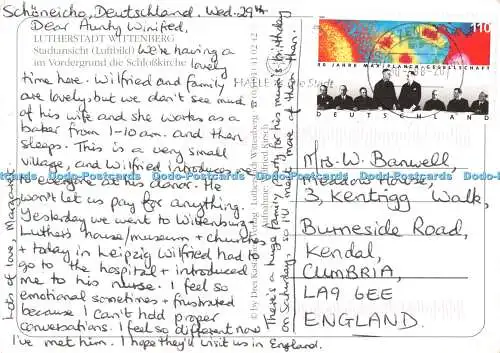 Schöneicho, Deutschland. Wed. 29th
Dear Aunty Winifred,
LUTHERSTADT WITTENBERG
Stadtansicht (Luftbild)
im Vordergrund die Schloßkirche
We're having a
lovely
time here. Wilfried and family
are lovely, but we don't see much
of his wife and she works as a
baker from 1-10am. and then
sleeps. This is a very small
village, and Wilfried introduces me
to everyone as his donor. He
won't let us pay for anything.
Yesterday we went to Wittenburg
Luther's house/museum + churches
+ today in Leipzig Wilfried had to
go to the hospital + introduced
me to his nurse. I feel so
emotional sometimes + frustrated
because I can't hold proper
conversations. I feel so different now
I've met him. I hope they'll visit us in England.
Lots of love, Margaret
There's a huge family party for his mum's birthday
on Saturday, so I'll meet more of them then.
110
50 JAHRE MAX-PLANCK-GESELLSCHAFT
DEUTSCHLAND
HALLE
Stadt
Mrs. W. Banwell,
Meadow House,
3, Kentrigg Walk,
Burneside Road,
Kendal,
CUMBRIA,
LA9 6EE
ENGLAND.
Dodo-Postcards Dodo-Postcards Dodo-Postcards Dodo-Postcards Dodo-Postcards Dodo-Postcards